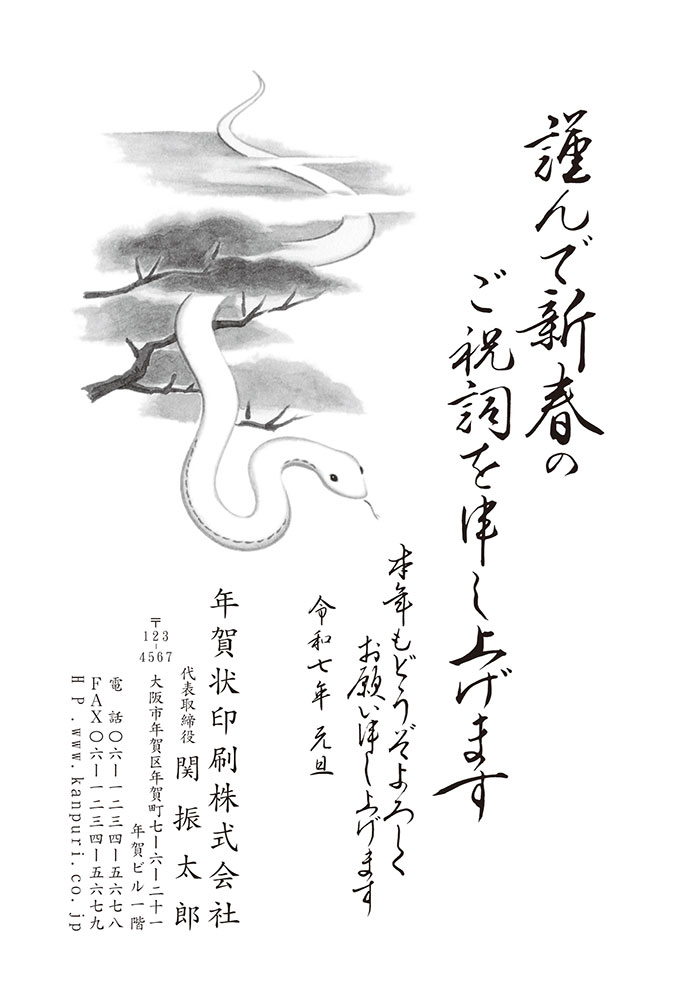 謹んで新春の
ご祝詞を申し上げます
本年もどうぞよろしく
お願い申し上げます
令和七年 元旦
年賀状印刷株式会社
代表取締役 関 振太郎
〒123-4567 大阪市年賀区年賀町七ー六ー二十一
年賀ビル一階
電 話〇六ー一二三四ー五六七八
FAX〇六ー一二三四ー五六七九
HP.www.kanpuri.co.jp